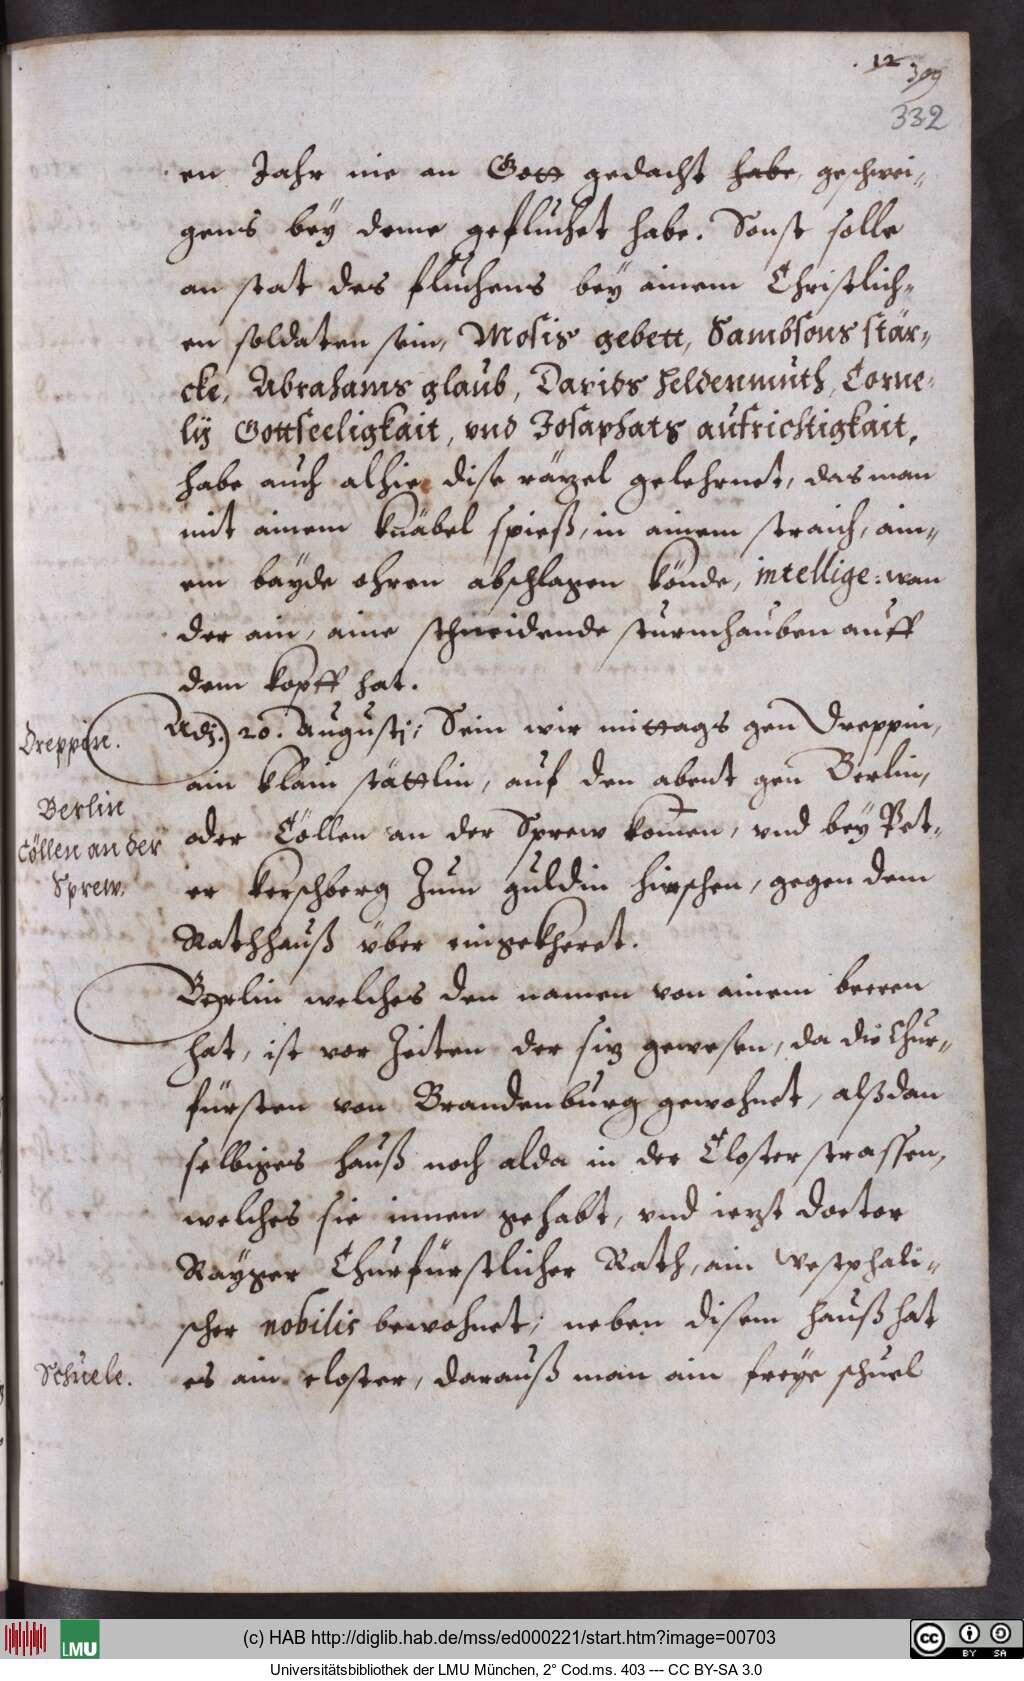 12
399
332
en Jahr nie an Gott gedacht habe, geschwei-
gens bey deme gefluchet habe. Sonst solle
an stat des fluchens bey ainem Christlich-
en soldaten sein, Mosis gebett, Sambsons stär-
cke, Abrahams glaub, Davids heldenmuth, Corne-
lij Gottseeligkait, vnd Josaphats aufrichtigkait,
habe auch alhie dise räzel gelehrnet, das man
mit ainem knäbel spieß, in ainem straich, ain-
em bayde ohren abschlagen könde, intellige: wan
der ain, aine schneidende sturmhauben auff
dem kopff hat.
Dreppin.
Adj. 20. Augustj; Sein wir mittags gen Dreppin,
ain klain stättlin, auf den abent gen Berlin,
Berlin
Cöllen an der
Sprew.
oder Cöllen an der Sprew komen, vnd bey Pet-
er Kerschberg Zum guldin hirschen, gegen dem
Rathhauß über eingekheret.
Berlin welches den namen von ainem beeren
hat, ist vor Zeiten der siz gewesen, da die Chur-
fürsten von Brandenburg gewohnet, alß dan
selbiges hauß noch alda in der Closter strassen,
welches sie innen gehabt, vnd iezt doctor
Rayger Churfürstlicher Rath, ain Westphali-
scher nobilis bewohnet; neben disem hauß hat
Schuele.
es ain closter, darauß man ain freye schuel
(c) HAB http://diglib.hab.de/mss/ed000221/start.htm?image=00703
LMU
cc BY SA
Universitätsbibliothek der LMU München, 2° Cod.ms. 403 --- CC BY-SA 3.0